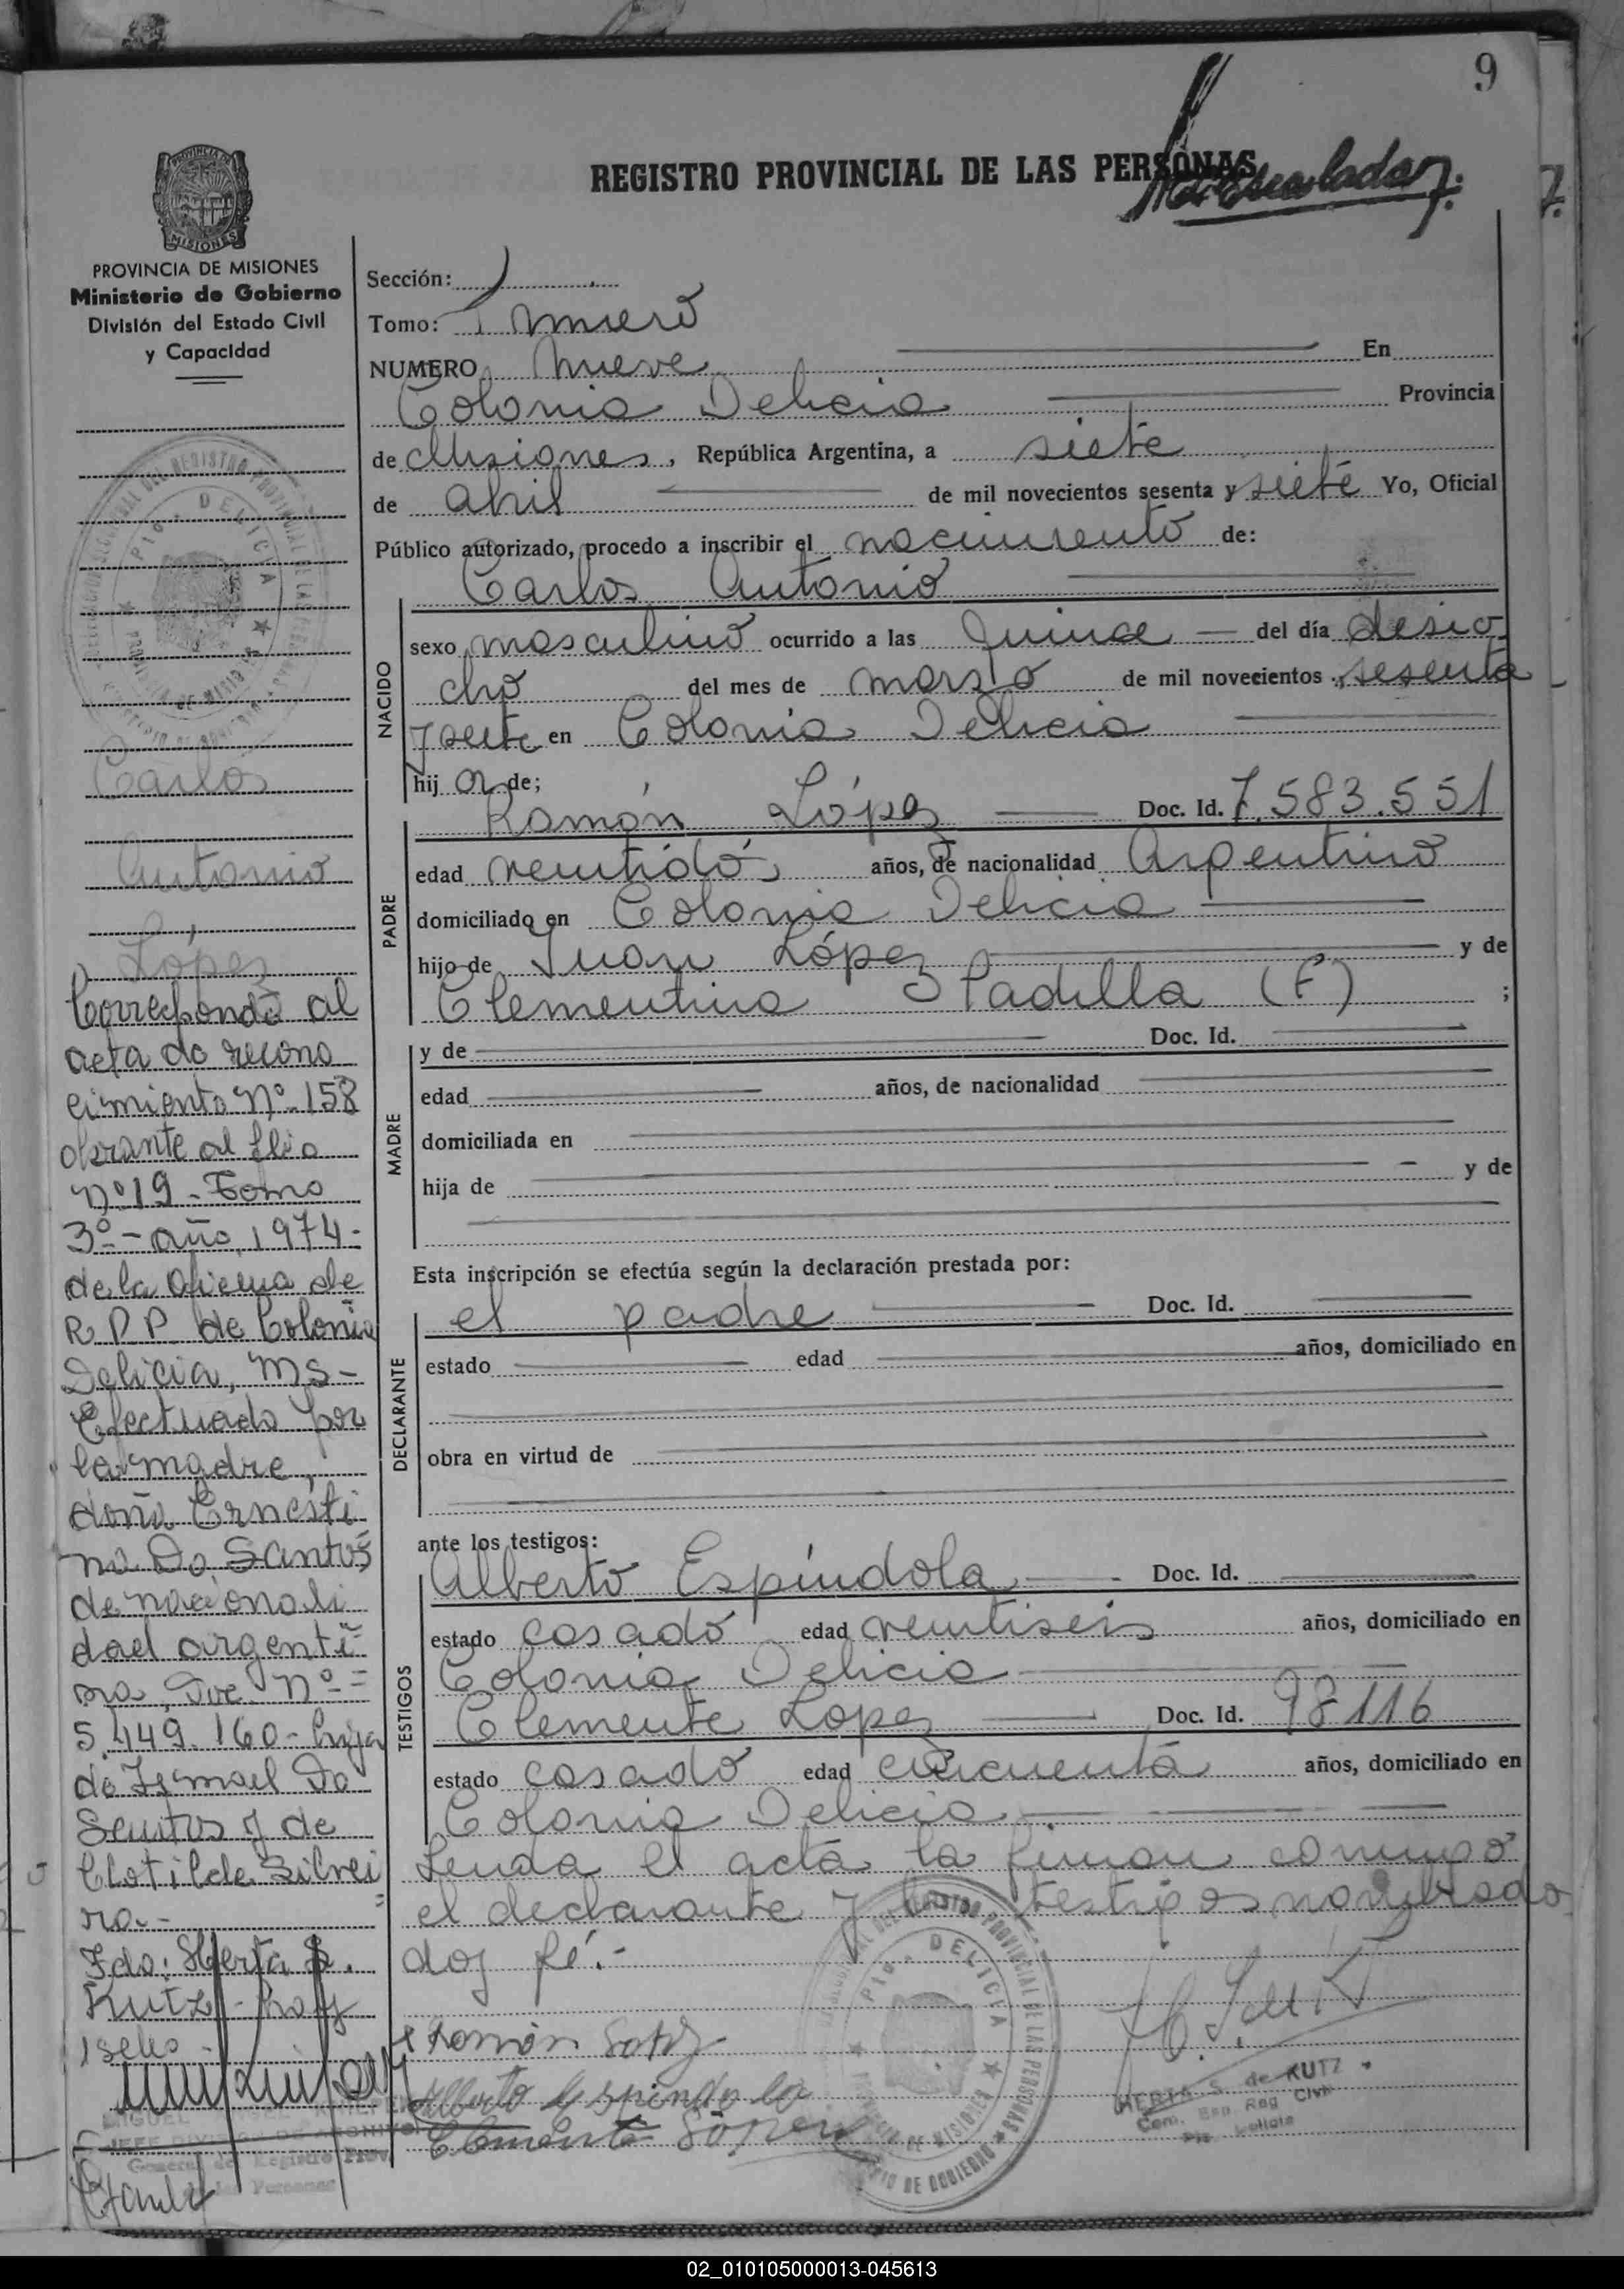 9
REGISTRO PROVINCIAL DE LAS PERSONAS
PROVINCIA DE MISIONES
Ministerio de Gobierno
División del Estado Civil
y Capacidad
Carlos
Antonio
López
Corresponde al
acta de recono
cimiento Nº 158
obrante al flio
nº 19 - Tomo
3º - año 1974 -
de la oficina de
R.P.P. de Colonia
Delicia, Ms -
Efectuado por
la madre,
doña Ernesti
na Do Santos
de nacionali
dad argenti
na, Doc. Nº =
5.449.160 - hija
de Ismael Do
Santos y de
Clotilde Silvei
ra.-
Fdo: Herta S.
Kutz - hay
1 sello.
JEFE DIVISION DE ARCHIVO
General del Registro Prov.
de las Personas
Sección:
Tomo: Primero
NUMERO nueve En
Colonia Delicia Provincia
de Misiones, República Argentina, a siete
de abril de mil novecientos sesenta y siete Yo, Oficial
Público autorizado, procedo a inscribir el nacimiento de:
Carlos Antonio
NACIDO
sexo masculino ocurrido a las quince del día desio
cho del mes de marzo de mil novecientos sesenta
y siete en Colonia Delicia
hij o de;
PADRE
Ramón López Doc. Id. 7.583.551
edad veintidós años, de nacionalidad Argentino
domiciliado en Colonia Delicia
hijo de Juan López y de
Clementina Padilla (F) ;
MADRE
y de Doc. Id.
edad años, de nacionalidad
domiciliada en
hija de y de
Esta inscripción se efectúa según la declaración prestada por:
DECLARANTE
el padre Doc. Id.
estado edad años, domiciliado en
obra en virtud de
ante los testigos:
TESTIGOS
Alberto Espíndola Doc. Id.
estado casado edad veintiseis años, domiciliado en
Colonia Delicia
Clemente Lopez Doc. Id. 98116
estado casado edad cincuenta años, domiciliado en
Colonia Delicia
Leida el acta la firman conmigo
el declarante y los testigos nombrado
doy fé.-
Ramón Lopez
Alberto Espindola
Clemente López
HERTA S. de KUTZ
02_010105000013-045613